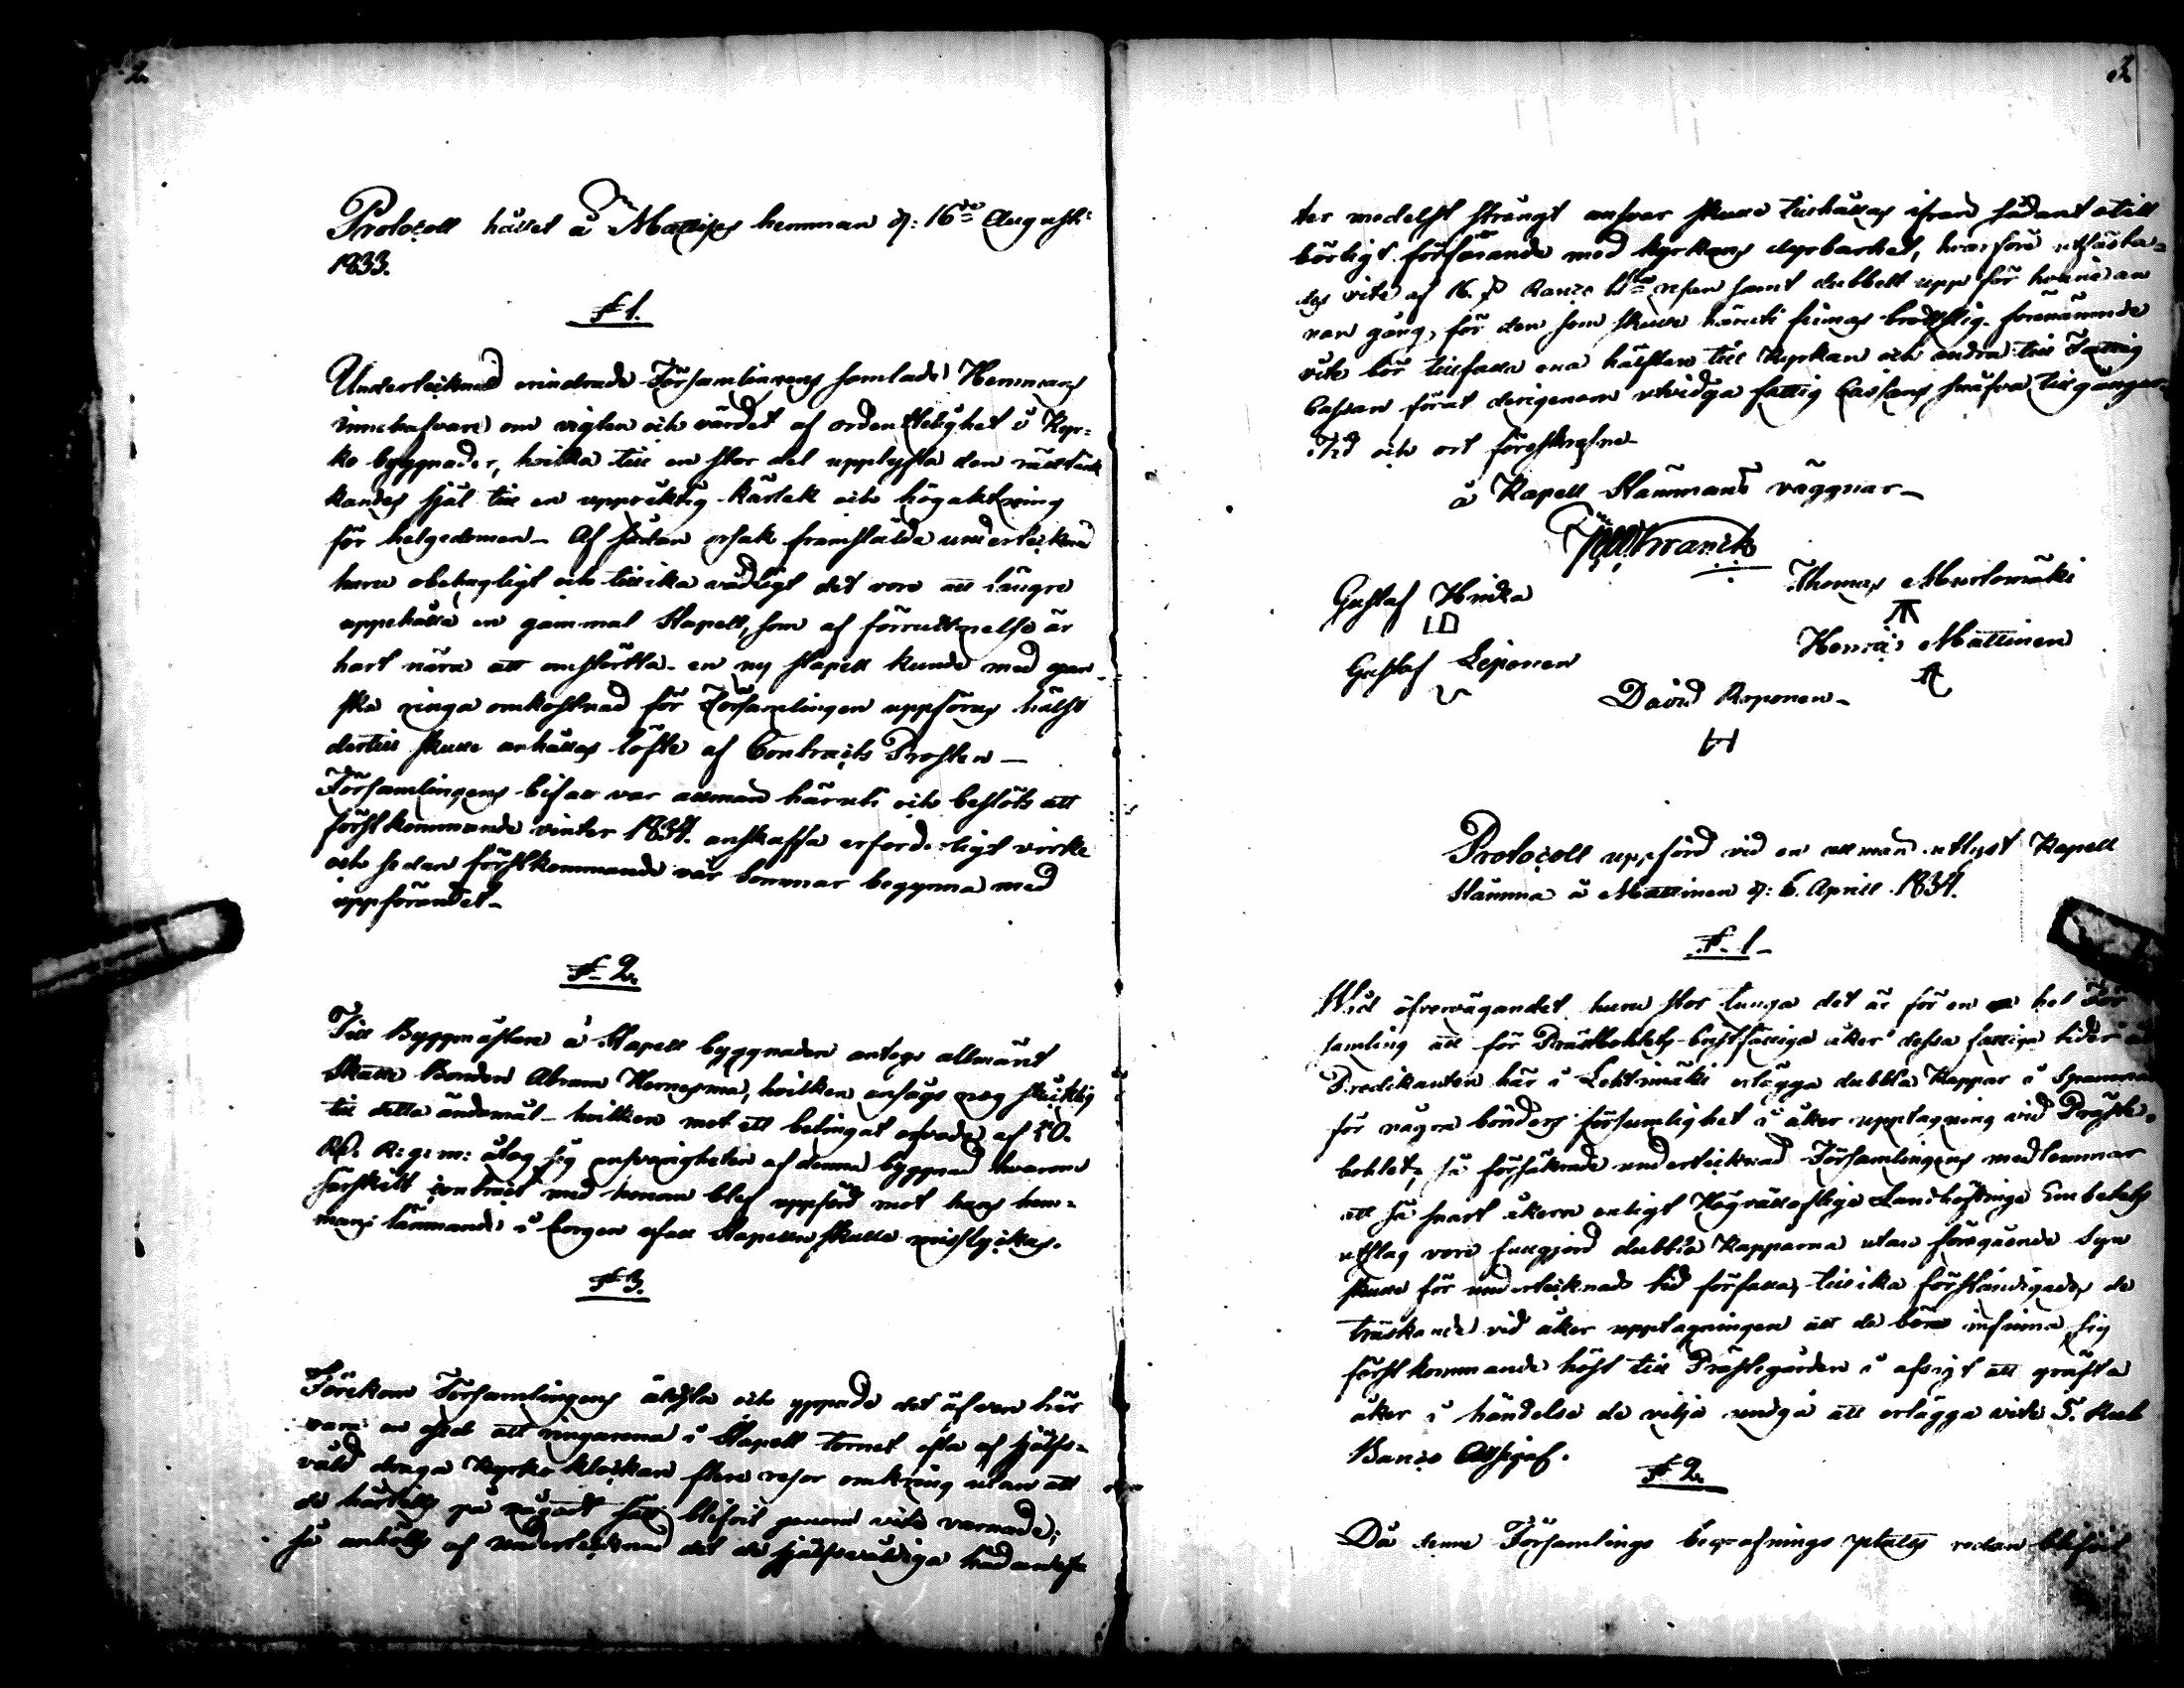 2.
Protocoll hållet å Mattises hemman d: 16de Augusti
1833.
§ 1.
Undertecknad erindrade Församlingens samlade Hemmans
innehafvare om vigten och värdet af ordentelighet i Kyr=
ko byggnader, hvilka till en stor del upplysta den rättänk
kandes själ till en uppriktig kärlek och högaktning
för helgedomen_ Af sådan orsak framstälde undertecknad
huru obehagligt och tillika vådligt det vore att längre
uppehålla en gammal Stapell, som af förruttnelse är
hart nära att omstörtta_ en ny stapell kunde med gan_
ska ringa omkostnad för Församlingen uppföras hälst
dertill skulle anhållas löfte af Contracts Prosten_
Församlingens bifall var allmän häruti och beslöts att
först kommande vinter 1834. anskaffa erforderligt virke
och sedan förstkommande vår sommar begynna med
uppförandet_
§ 2.
Till Byggmästare å Stapell byggnaden antogs allmänt
Skatte Bonden Abram Hernesmaa, hvilken ansågs nog skicklig
till detta ändamål_ hvilken mot ett betingat arfvode af 50.
RD. R:g:m: åtog sig ansvarigheten af denna byggnad hvarom
särskilt contract med honom blef uppförd mot hans hem=
mans lämmande i borgen ifall Stapellen skulle misslyckas.
§ 3.
Förekom Församlingens äldsta och yppade det äfven här
vara en osed att ringarena i Stapell tornet ofta af sjelfs=
våld draga Kyrko klockan flere resor omkring utan att
de härtills på något sätt blifvit genom vite varnade;
så anhölls af undertecknad det de sjelfsvåldiga hädanef=
3
ter medelst strängt ansvar skulle tillhållas ifrån sådant otill
börligt förfarande med kyrkans dyrbarhet, hvarföre utfästa=
des vite af 16. s Banco 1sta resan samt dubbelt upp för hvarje an
nan gång, för den som skulle häruti finnas brottslig. förenämnde
vite bör tillfalla ena hälften till Kyrkan och andra till Fattig
Cassan förat derigenom utvidga fattig Cassans småfva tillgångar_
Tid och ort föreskrefne_
å Kapell Stämmans väggnar_
Gustaf Hindka
Thomas Murtomäki
Gustaf Leponen
Henric Mattinen
David Roponen_
Protocoll uppförd vid en allmän utlyst Kapell
Stämma å Mattinen d: 6. Aprill 1834.
§ 1_
Vid öfvervägandet huru stor tunga det är för en hel För
samling att för Prästbohlets bristfälliga åker dessa fattiga tider åt
Predikanten här i Lehtimäki erlägga dubbla Kappar i Spannmål
för några bönders försumlighet i åker upptagning vid Präste=
bohlet, så försäkrade undertecknad Församlingens medlemmar
att så snart åkern enligt Högvällofliga Landshöfdinge Embetets
utslag vore fullgjord dubbla Kapparna utan föregående Syn
skulle för undertecknads tid förfalla, tillika förständigades de
tröskande vid åker upptagningen att de böra infinna sig
först kommande höst till Prästegården i afsigt att gräfta
åker i händelse de vilja undgå att erlägga vite 5. Rub
Banco Assignf.
§ 2.
Då denne Församlings begrafnings platts redan blifvit